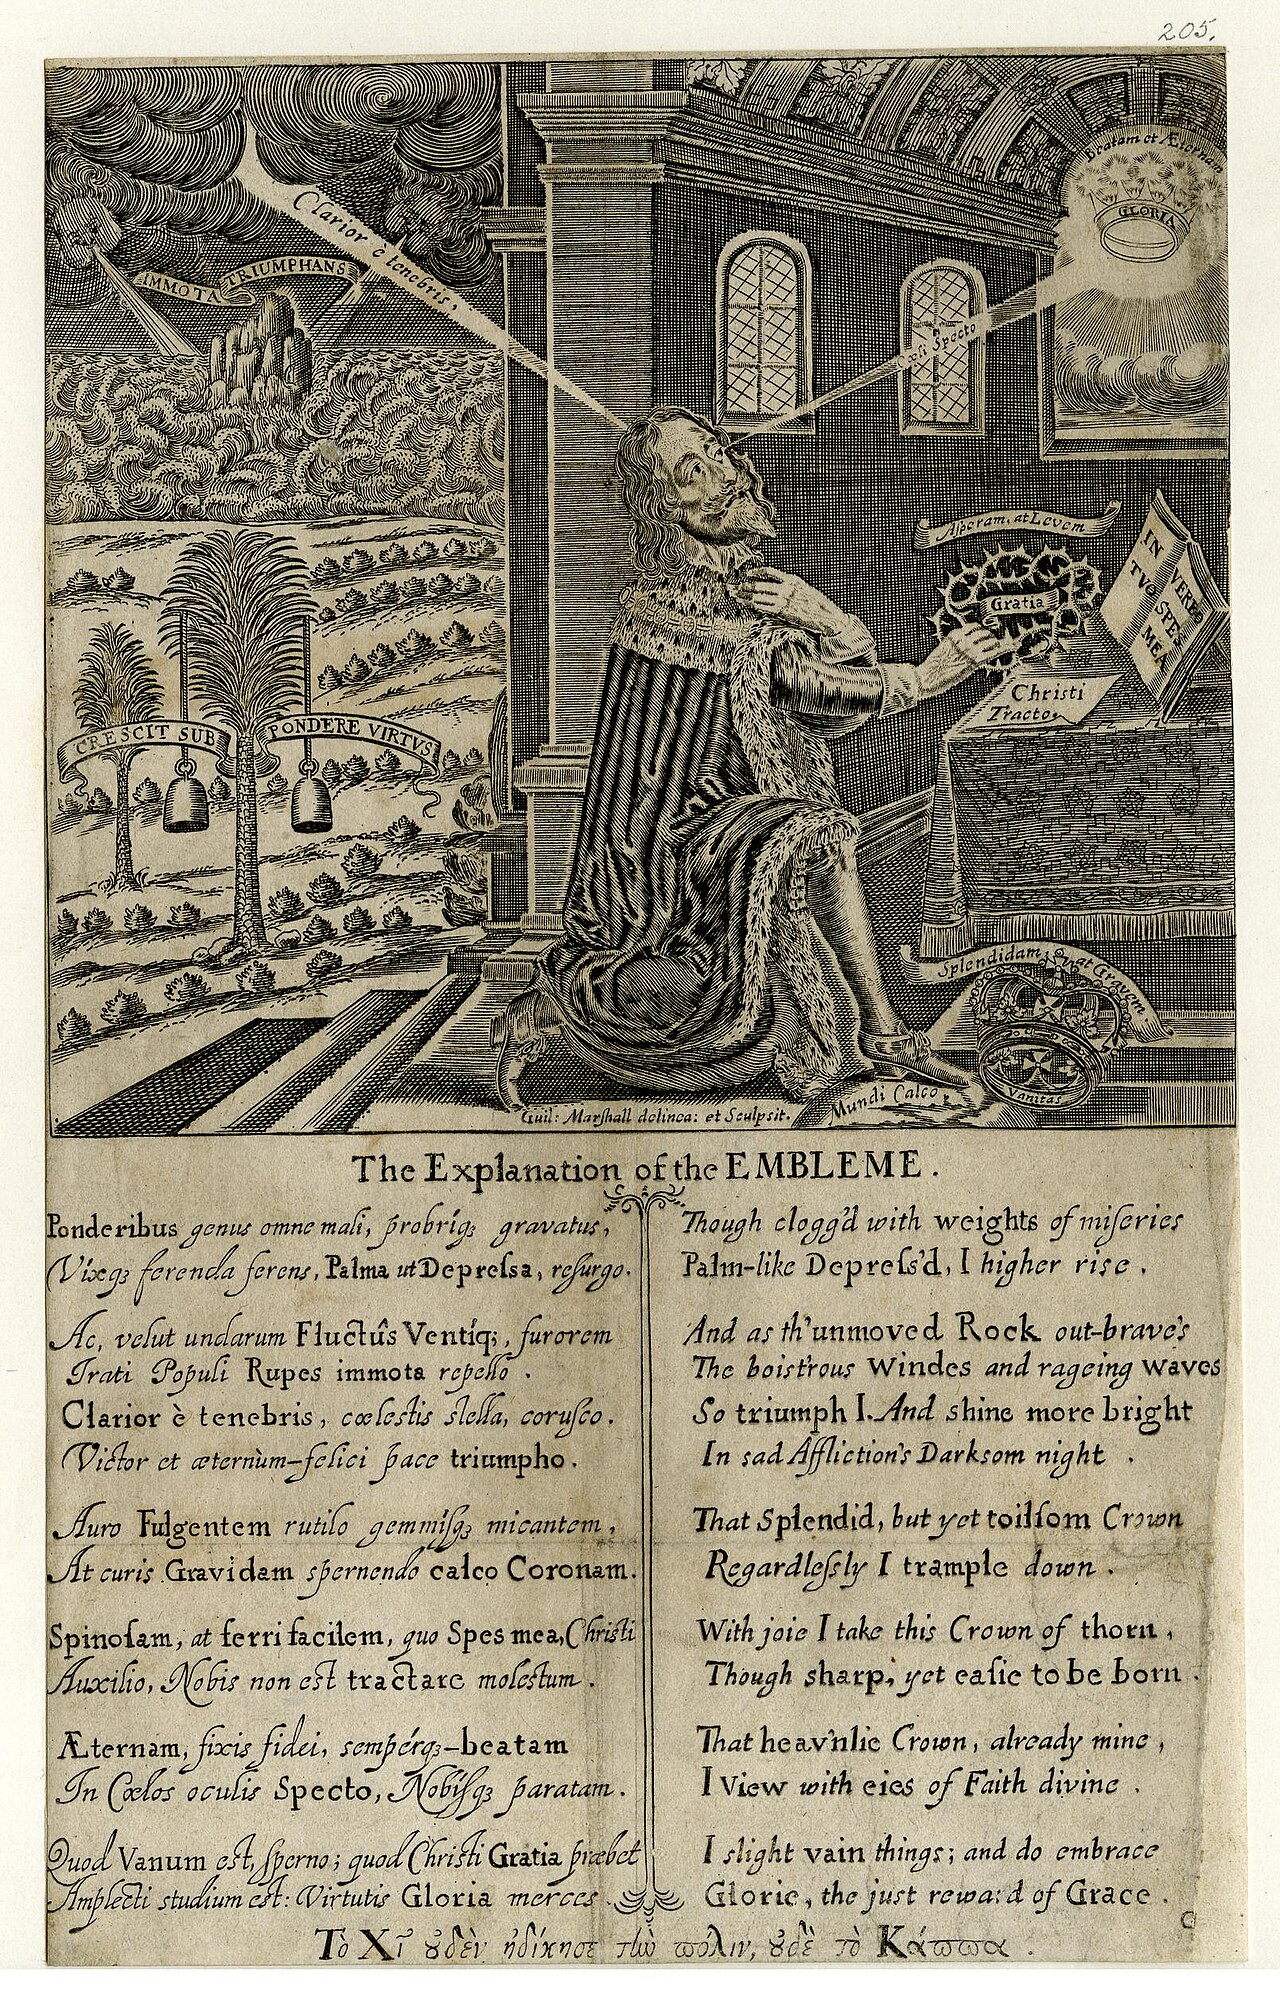 205.
Clarior è tenebris,
IMMOTA TRIUMPHANS
Beatam et Æternam
GLORIA
Cœli Specto
Asperam, at Levem
Gratia
IN VERBO
TVO SPES
MEA
Christi
Tracto.
CRESCIT SUB PONDERE VIRTVS
Splendidam, at Gravem
Vanitas
Mundi Calco.
Guil: Marſhall delinea: et Sculpsit.
The Explanation of the EMBLEME.
Ponderibus genus omne mali, probriq₃ gravatus,
Vixq₃ ferenda ferens, Palma ut Depreſsa, reſurgo.
Ac, velut undarum Fluctûs Ventíq;, furorem
Irati Populi Rupes immota repello.
Clarior è tenebris, cœlestis stella, coruſco.
Victor et æternùm-felici pace triumpho.
Auro Fulgentem rutilo gemmiſq₃ micantem,
At curis Gravidam spernendo calco Coronam.
Spinoſam, at ferri facilem, quo Spes mea, Christi
Auxilio, Nobis non est tractare molestum.
Æternam, fixis fidei, sempérq₃-beatam
In Cœlos oculis Specto, Nobiſq₃ paratam.
Quod Vanum est, ſperno; quod Christi Gratia præbet
Amplecti studium est: Virtutis Gloria merces.
Though clogg'd with weights of miſeries
Palm-like Depreſs'd, I higher rise.
And as th'unmoved Rock out-brave's
The boist'rous Windes and rageing waves
So triumph I. And shine more bright
In sad Affliction's Darksom night.
That Splendid, but yet toilſom Crown
Regardleſsly I trample down.
With joie I take this Crown of thorn,
Though sharp, yet eaſie to be born.
That heav'nlie Crown, already mine,
I View with eies of Faith divine.
I slight vain things; and do embrace
Glorie, the just reward of Grace.
Τὸ Χῖ ȣ̓δὲν ἠδίκησε τὴν πόλιν, ȣ̓δὲ τὸ Κάππα.